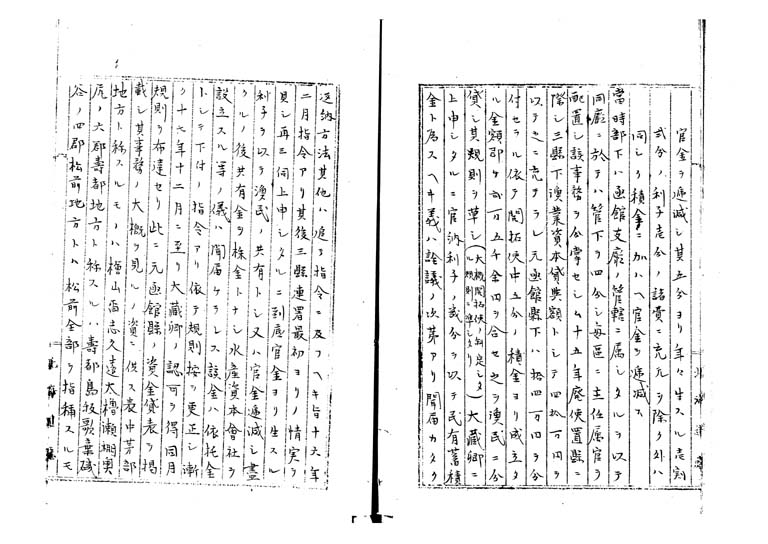 官金ヲ逓減シ其五分ヨリ年々生スル壱割
弐分ノ利子壱分ノ諸費ニ充ルヲ除ク外ハ
同シク積金ニ加ハヘ官金ヲ逓減ス
當時部下ハ函館支廳ノ管轄ニ属シタルヲ以テ
同廳ニ於テハ管下ヲ四分シ毎區ニ主任属官ヲ
配置シ該事務ヲ分掌セシム十五年廢使置縣ニ
際シ三縣下漁業資本貸與額トシテ四拾万円ヲ
以テ之ニ充テラレ元函館縣下ハ拾四万円ヲ分
付セラル依テ開拓使中五分ノ積金ヨリ成立タ
ル金額即ケ弐万五千金円ヲ合セ之ヲ漁民ニ分
貸シ其規則ヲ草シ(大概開拓使ノ判定シタル規則ニ準シタリ)大藏卿ニ
上申シタルニ官納利子ノ弐分ヲ以テ民有蓄積
金ト為スヘキ義ハ詮議ノ次第アリ聞届カタク
返納方法其他ハ追テ指令ニ及フヘキ旨十六年
二月指令アリ其後三縣連署最初ヨリノ情実ヲ
具シ再三伺上申シタルニ到底官金ヨリ生スル
利子ヲ以テ漁民ノ共有トシ又ハ官金逓減シ盡
クルノ後共有金ヲ株金トナシ水産資本會社ヲ
設立スル等ノ儀ハ聞届ケラレス該金ハ依托金
トシテ下付ノ指令アリ依テ規則按ヲ更正シ漸
ク十七年十二月ニ至リ大藏卿ノ認可ヲ得同月
規則ヲ布達セリ此ニ元函館縣資金貸表ヲ掲
載シ其事務ノ大概ヲ見ルノ資ニ供ス表中茅部
地方ト称スルモノハ檜山爾志久遠太櫓瀬棚奥
尻ノ六郡壽都地方ト称スルハ壽都島牧歌棄磯
谷ノ四郡松前地方トハ松前全部ヲ指稱スルモ